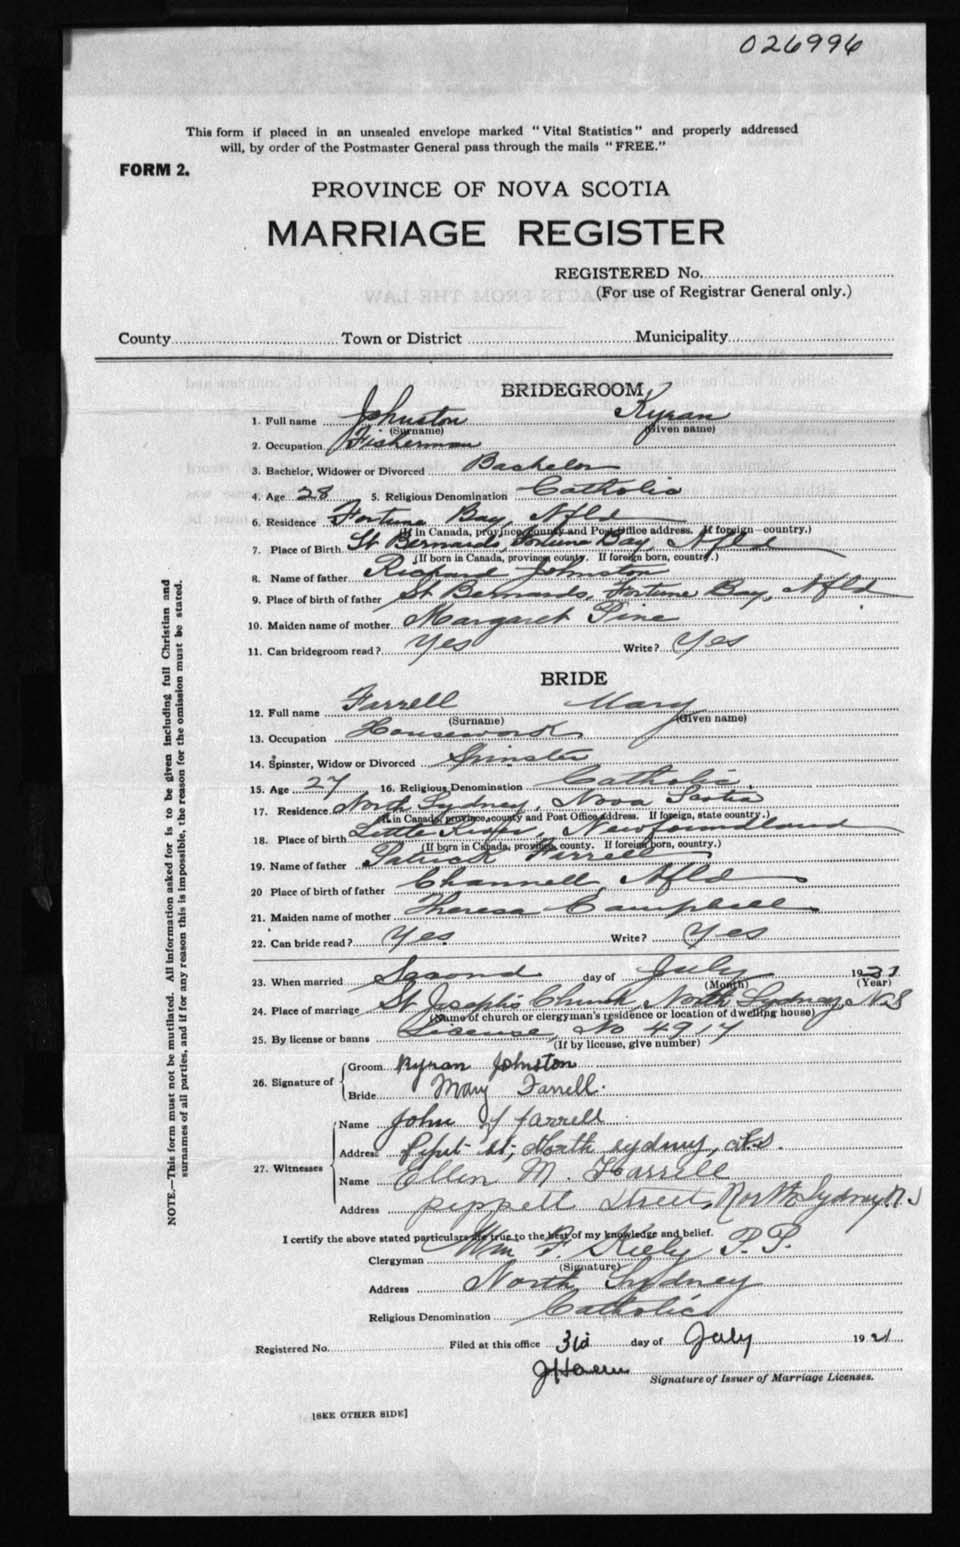 026996
This form if placed in an unsealed envelope marked "Vital Statistics" and properly addressed
will, by order of the Postmaster General pass through the mails "FREE."
FORM 2.
PROVINCE OF NOVA SCOTIA
MARRIAGE REGISTER
REGISTERED No.
(For use of Registrar General only.)
County Town or District Municipality
BRIDEGROOM
1. Full name Johnston Kyran
(Surname) (Given name)
2. Occupation Fisherman
3. Bachelor, Widower or Divorced Bachelor
4. Age 28 5. Religious Denomination Catholic
6. Residence Fortune Bay, Nfld
(If in Canada, province, county and Post Office address. If foreign country.)
7. Place of Birth St Bernards, Fortune Bay, Nfld
(If born in Canada, province county. If foreign born, country.)
8. Name of father Richard Johnston
9. Place of birth of father St Bernards, Fortune Bay, Nfld
10. Maiden name of mother Margaret Pine
11. Can bridegroom read? Yes Write? Yes
BRIDE
12. Full name Farrell Mary
(Surname) (Given name)
13. Occupation Housework
14. Spinster, Widow or Divorced Spinster
15. Age 27 16. Religious Denomination Catholic
17. Residence North Sydney, Nova Scotia
(If in Canada, province, county and Post Office Address. If foreign, state country.)
18. Place of birth Little River, Newfoundland
(If born in Canada, province, county. If foreign born, country.)
19. Name of father Patrick Farrell
20 Place of birth of father Channell, Nfld
21. Maiden name of mother Theresa Campbell
22. Can bride read? Yes. Write? Yes
23. When married Second day of July 19
(Month) (Year)
24. Place of marriage St Joseph's Church, North Sydney, NS
(Name of church or clergyman's residence or location of dwelling house)
25. By license or banns License, No 4917
(If by license, give number)
26. Signature of Groom Kyran Johnston
Bride Mary Farrell.
27. Witnesses Name John Farrell
Address St, North Sydney,
Name Ellen M. Farrell
Address pippett Street, North Sydney N.S
I certify the above stated particulars are true to the best of my knowledge and belief.
Clergyman Wm F Kiely P.P.
(Signature)
Address North Sydney
Religious Denomination Catholic
Registered No. Filed at this office 3rd day of July 1921
Signature of Issuer of Marriage Licenses.
[SEE OTHER SIDE]
NOTE.—This form must not be mutilated. All information asked for is to be given including full Christian and
surnames of all parties, and if for any reason this is impossible, the reason for the omission must be stated.